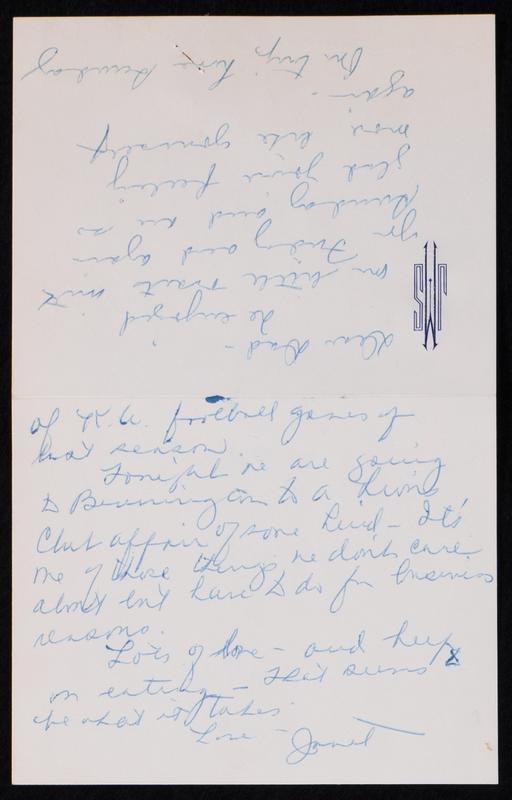 Dear Dad -
We enjoyed
our little visit with
you Friday and again
Sunday and are so
glad you're feeling
more like yourself
again -
Our trip home Sunday
of K.U. football games of
last season.
Tonight we are going
to Bennington to a Lions
Club affair of some kind - It's
one of those things we don't care
about but have to do for business
reasons.
Lots of love - and keep
on eating - that seems
be what it takes.
Love - Janet